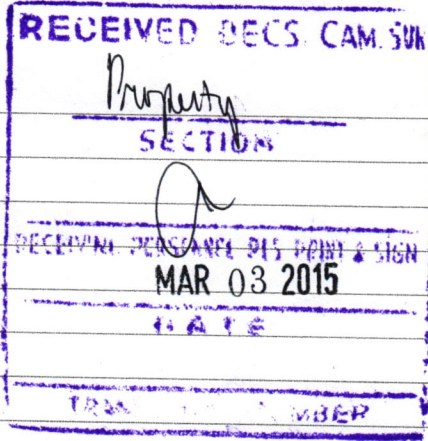 RECEIVED DECS. CAM. SUR
Property
SECTION
RECEIVING PERSONNEL PLS PRINT & SIGN
MAR 03 2015
DATE
NUMBER